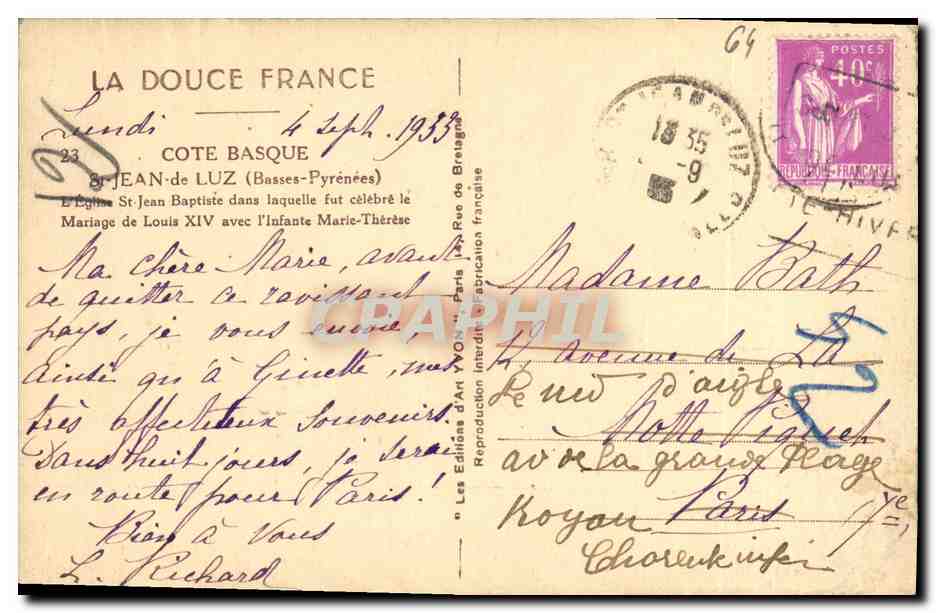 64
POSTES
40c
REPUBLIQUE FRANÇAISE
LA DOUCE FRANCE
Lundi 4 sept. 1933
23
COTE BASQUE
St-JEAN-de LUZ (Basses-Pyrénées)
L'Église St-Jean Baptiste dans laquelle fut célébré le
Mariage de Louis XIV avec l'Infante Marie-Thérèse
Ma chère Marie, avant
de quitter ce ravissant
pays, je vous envoie,
ainsi qu'à Ginette, mes
très affectueux souvenirs.
Dans huit jours, je serai
en route pour Paris!
Bien à Vous
L. Richard
"Les Editions d'Art YVON" Paris Rue de Bretagne
Reproduction interdite Fabrication française
13 35
-9
33
TE-HIVER
Madame Bath
12, avenue de La
Le nid d'aigle
Motte Picquet
av de la grande Plage
Royan Paris 7e
24
CPARAPHIL